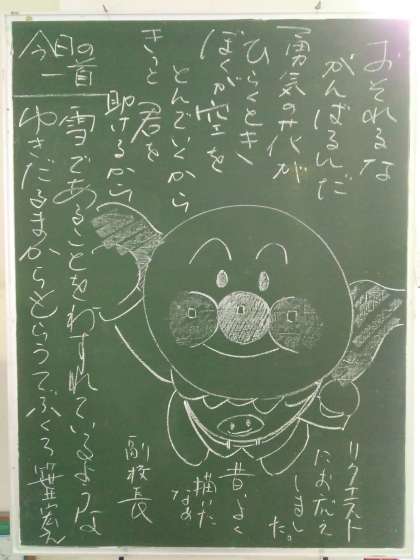 おそれるな
がんばるんだ
勇気の花が
ひらくとき、
ぼくが空を
とんでいくから
きっと君を
助けるから
今日の一首
雪であることをわすれているような
ゆきだるまからもらうてぶくろ 笹井宏之
リクエスト
にお応え
しました。
昔、よく
描いた
なあ
副校長